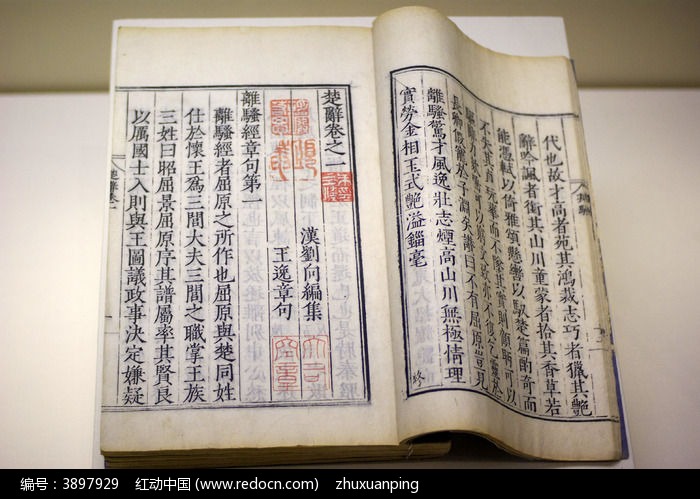 代也故才高者苑其鴻裁志巧者獵其艷
辭吟諷者銜其山川童蒙者拾其香草若
能憑軾以倚雅頌懸轡以馭楚篇酌奇而
不失其貞玩華而不墜其實則顧盼可以
驅辭力欬唾可以窮文致亦不復乞靈於
長卿假寵於子淵矣讚曰不有屈原豈見
離騷驚才風逸壯志煙高山川無極情理
實勞金相玉式艷溢錙毫
終
楚辭卷之一
漢劉向編集
王逸章句
離騷經章句第一
離騷經者屈原之所作也屈原與楚同姓
仕於懷王爲三閭大夫三閭之職掌王族
三姓曰昭屈景屈原序其譜屬率其賢良
以厲國士入則與王圖議政事決定嫌疑
编号：3897929 红动中国 (www.redocn.com) zhuxuanping